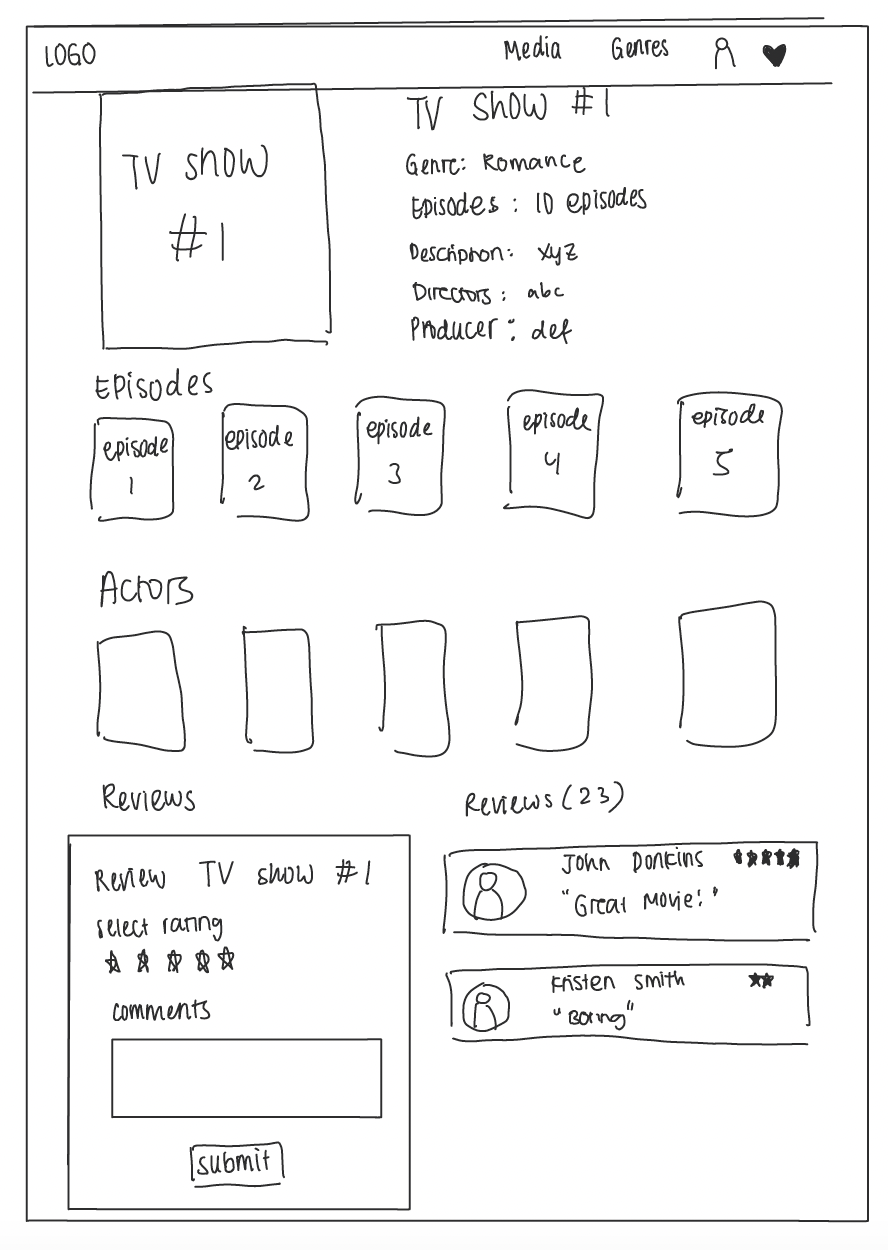 LOGO Media Genres
TV Show
#1
TV Show #1
Genre: Romance
Episodes : 10 episodes
Description: xyz
Directors : abc
Producer : def
Episodes
episode
1
episode
2
episode
3
episode
4
episode
5
Actors
Reviews
Review TV show #1
select rating
comments
submit
Reviews (23)
John Donkins
"Great Movie!"
Kristen Smith
"Boring"